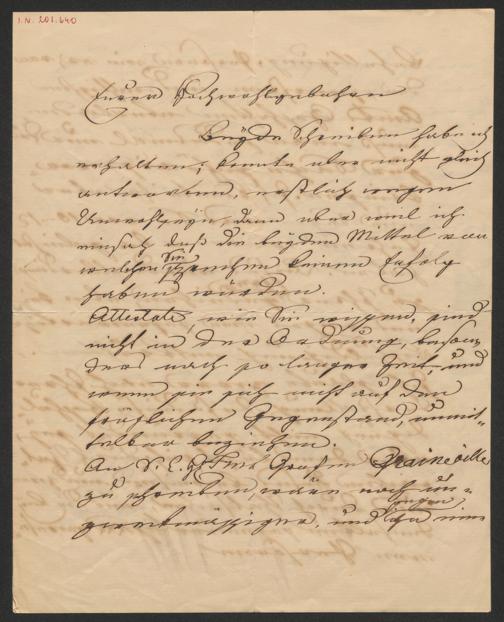 I.N. 201.640
Euer Hochwohlgebohren
Beyde Schreiben habe ich
erhalten; konnte aber nicht gleich
antworten, erstlich wegen
Unwohlseyn, dann aber weil ich
einsah daß die beyden Mittel von
welchen Sie sprechen keinen Erfolg
haben würden.
Attestate, wie Sie wissen, sind
nicht in der Ordnung, beson
ders nach so langer Zeit, und
wenn sie sich nicht auf den
fraglichen Gegenstand, unmit-
telbar beziehen.
An S. E. Grafen Graineville
zu schreiben, wäre noch un-
zweckmässiger, und